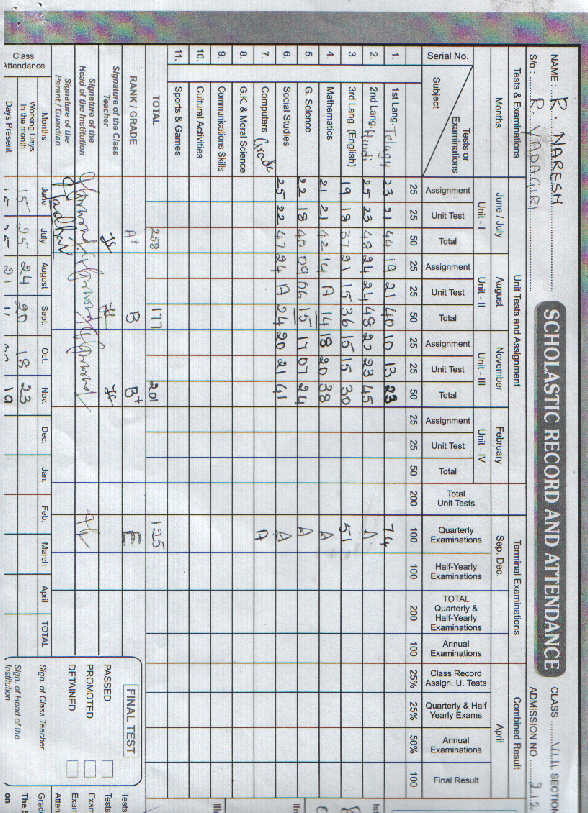 SCHOLASTIC RECORD AND ATTENDANCE
NAME : R. NARESH CLASS VIII SECTION
S/o : R. YADAGIRI ADMISSION NO.
Tests & Examinations Unit Tests and Assignment Terminal Examinations Combined Result
Months June / July August November February Sep. Dec. April
Unit - I Unit - II Unit - III Unit - IV
Serial No. Subject Tests or Examinations Assignment Unit Test Total Assignment Unit Test Total Assignment Unit Test Total Assignment Unit Test Total Total Unit Tests Quarterly Examinations Half-Yearly Examinations TOTAL Quarterly & Half-Yearly Examinations Annual Examinations Class Record Assign. U. Tests Quarterly & Half Yearly Exams Annual Examinations Final Result
25 25 50 25 25 50 25 25 50 25 25 50 200 100 100 200 100 25% 25% 50% 100
1. 1st Lang. Telugu 23 21 44 19 21 40 10 13 23 74
2. 2nd Lang. Hindi 25 23 48 24 24 48 22 23 45 A
3. 3rd Lang. (English) 19 18 37 21 15 36 15 15 30 51
4. Mathematics 21 21 42 14 A 14 18 20 38 A
5. G. Science 22 18 40 09 06 15 17 07 24 A
6. Social Studies 25 22 47 24 A 24 20 21 41 A
7. Computers A
8. G.K. & Moral Science
9. Communications Skills
10. Cultural Activities
11. Sports & Games
TOTAL 258 177 201 125
RANK / GRADE A+ B B+ E
Signature of the Class Teacher
Signature of the Head of the Institution
Signature of the Parent / Guardian
FINAL TEST
PASSED
PROMOTED
DETAINED
Class Attendance Months June July August Sept. Oct. Nov. Dec. Jan. Feb. March April TOTAL Sign. of Class Teacher
Working Days in the month 15 25 24 20 18 23
Days Present
Sign. of Head of the Institution